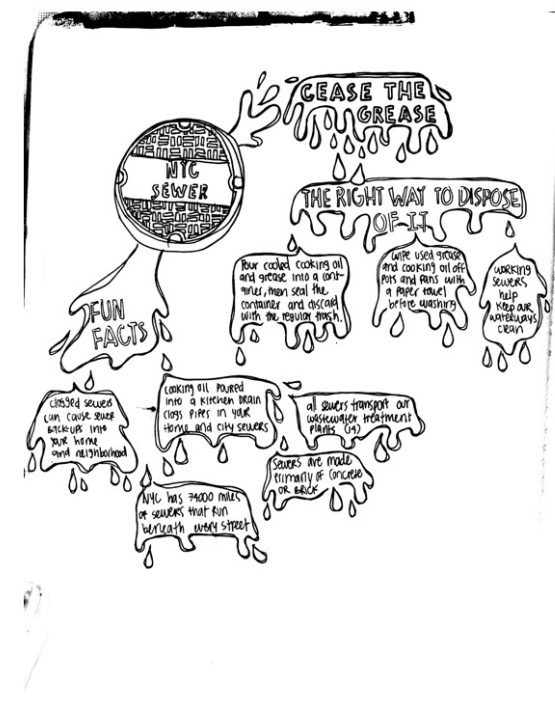 CEASE THE
GREASE
NYC
SEWER
THE RIGHT WAY TO DISPOSE
OF IT
Pour cooled cooking oil
and grease into a cont-
ainer, then seal the
container and discard
with the regular trash.
wipe used grease
and cooking oil off
pots and pans with
a paper towel
before washing
working
sewers
help
keep our
waterways
clean
FUN
FACTS
clogged sewers
can cause sewer
BACK-UPS into
your home
and neighborhood
cooking oil poured
into a kitchen drain
clogs pipes in your
home and city sewers
all sewers transport our
wastewater treatment
plants (14)
Sewers are made
primarily of concrete
OR BRICK
NYC has
miles
of sewers that run
beneath every street